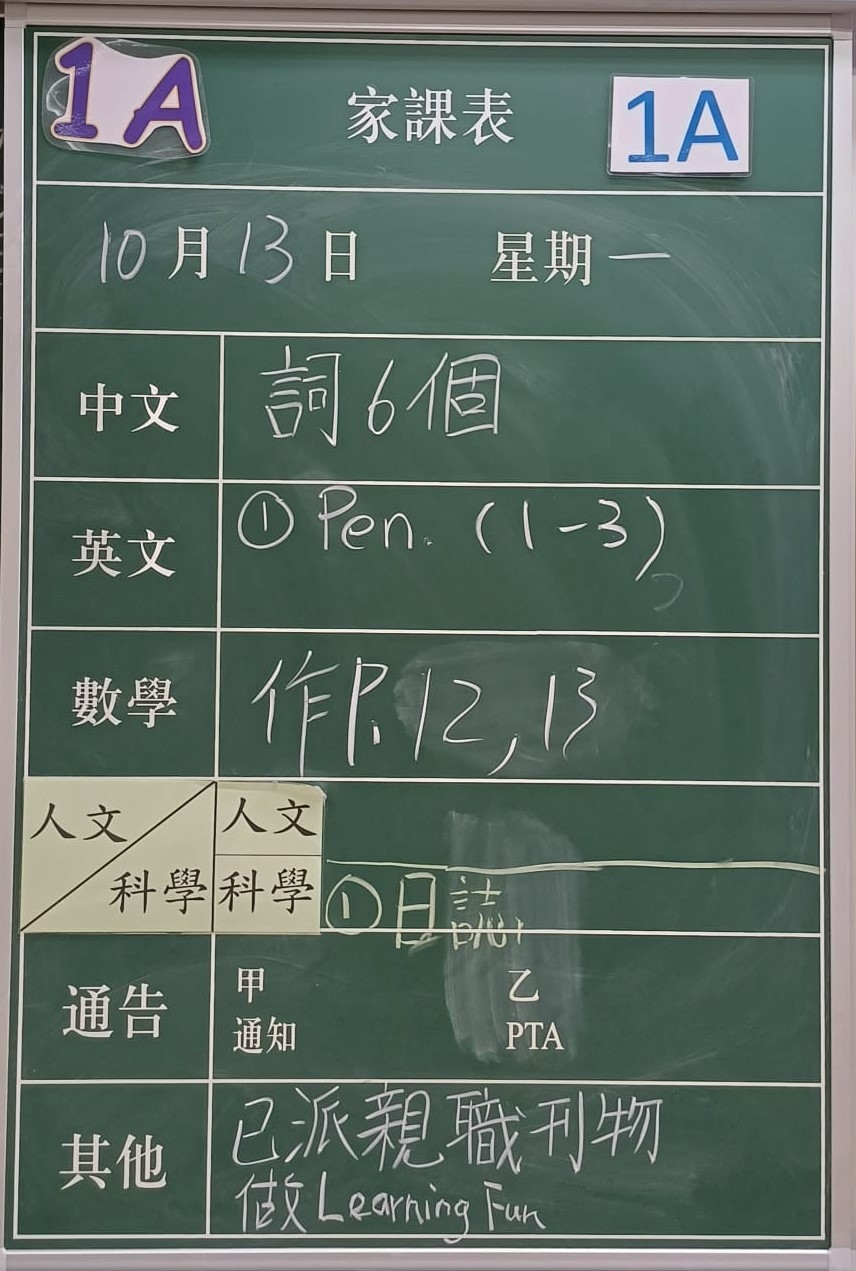 1A 家課表 1A
10月13日 星期一
中文 詞6個
英文 ① Pen. (1-3)
數學 作P.12, 13
人文 人文
科學 科學 ①日誌
通告 甲 乙
通知 PTA
其他 已派親職刊物
做Learning Fun